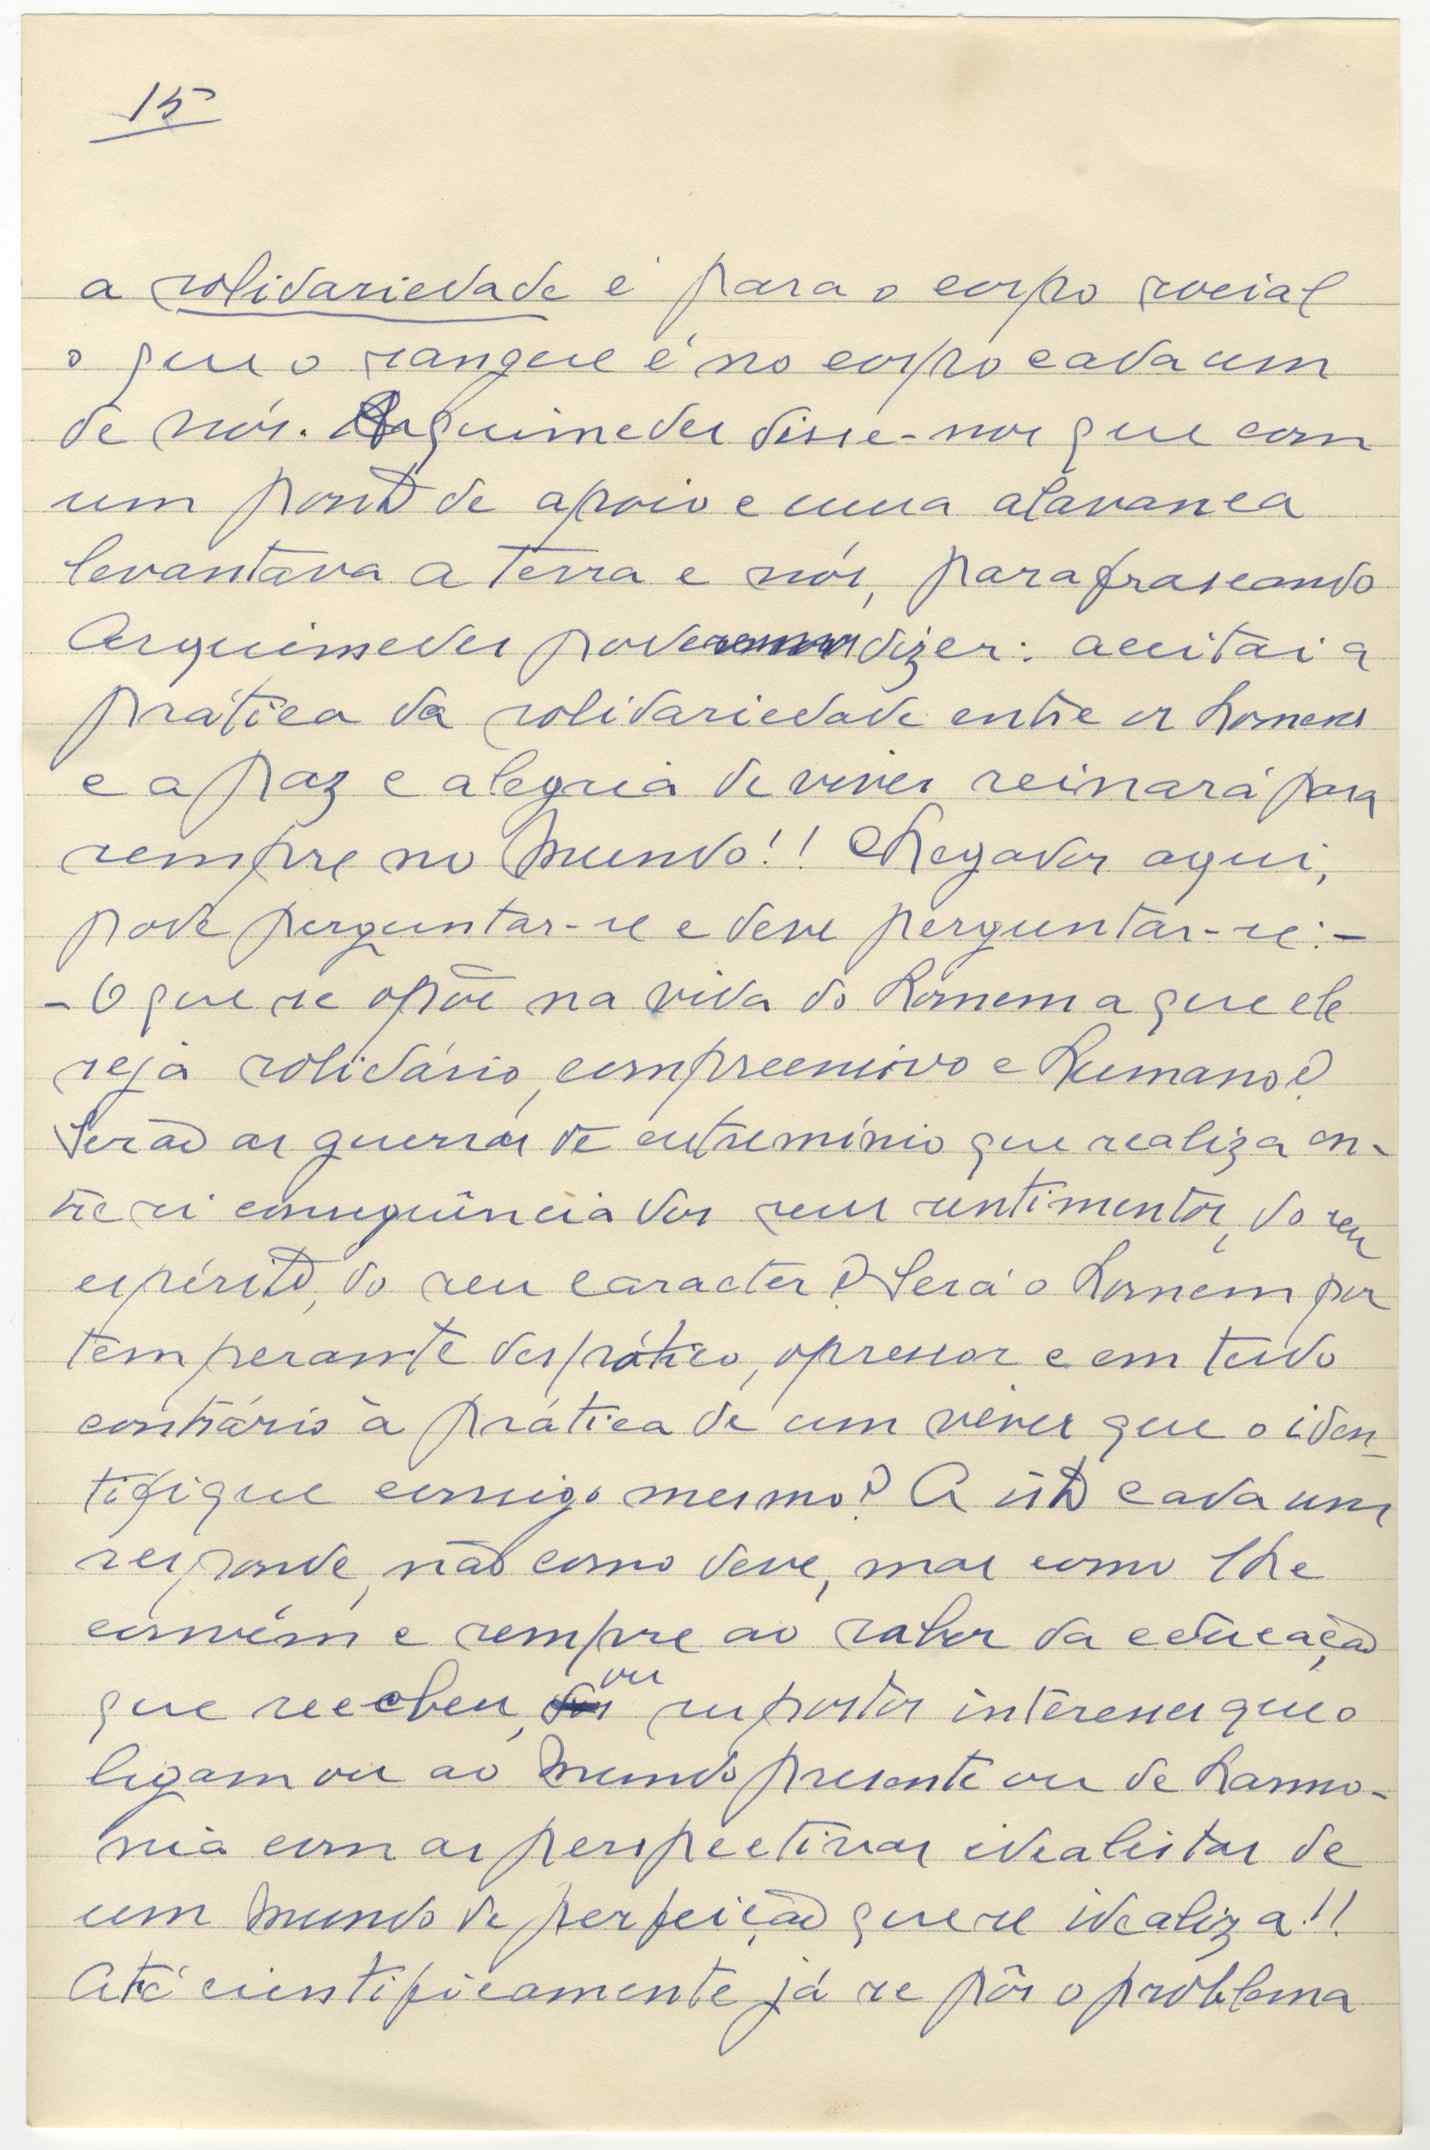 15
a solidariedade é para o corpo social
o que o sangue é no corpo cada um
de nós. Arquimedes disse-nos que com
um ponto de apoio e uma alavanca
levantava a terra e nós, parafraseando
Arquimedes poderemos dizer: aceitai a
prática da solidariedade entre os homens
e a paz e alegria de viver reinará para
sempre no mundo!! Chegados aqui,
pode perguntar-se e deve perguntar-se:-
- O que se opõe na vida do homem a que ele
seja solidário, compreensivo e humano?
Serão as guerras de extremínio que realiza en-
tre si consequência dos seus sentimentos, do seu
espírito, do seu caracter? Será o homem por
temperamente despótico, opressor e em tudo
contrário à prática de um viver que o iden-
tifique consigo mesmo? A isto cada um
responde, não como deve, mas como lhe
convém e sempre ao sabor da educação
que recebeu, ou supostos interesses que o
ligam ou ao mundo presente ou de harmo-
nia com as perspectivas idealistas de
um mundo de perfeição que se idealiza!!
Até cientificamente já se pôs o problema